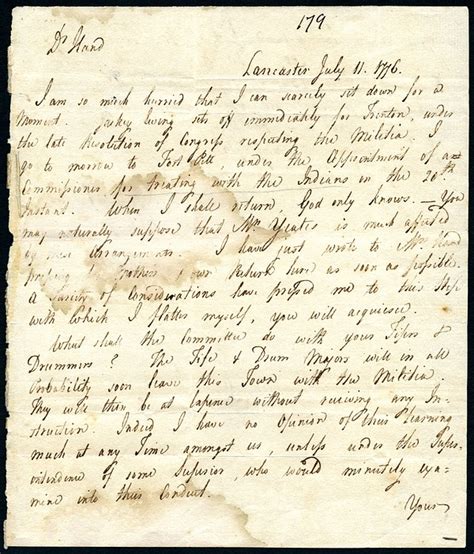 179
Dr Hand
Lancaster July 11. 1776.
I am so much hurried that I can scarcely set down for a
Moment. Jasey Ewing sets off immediately for Trenton, under
the late Resolution of Congress respecting the Militia. I
go to morrow to Fort Pitt under the Appointment of a
Commissioner for treating with the Indians on the 20th
Instant. When I shall return, God only knows. You
may naturally suppose that Mrs Yeates is much affected
by these Arrangements. I have just wrote to Mrs Hand
pressing her & Mothers our Return here as soon as possible.
A Variety of Considerations have pressed me to this Step
with which I flatter myself, you will acquiesce.
What shall the Committee do with your Fifers &
Drummers? The Fife & Drum Majors will in all
Probability soon leave this Town with the Militia.
They will then be at Expence without receiving any In-
struction. Indeed I have no Opinion of their Learning
much at any Time amongst us, unless under the Super-
intendence of some Superior, who would minutely exa-
mine into their Conduct.
Yours